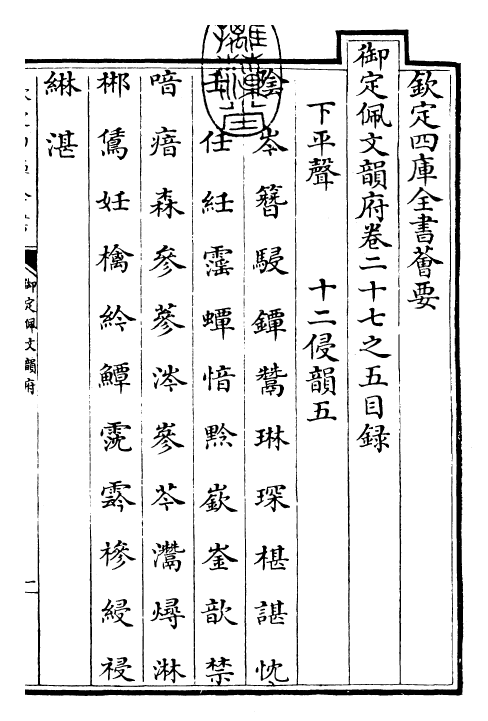 欽定四庫全書薈要
御定佩文韻府卷二十七之五目録
下平聲 十二侵韻五
陰岑簪駸鐔鬵琳琛椹諶忱
壬任紝霪蟫愔黔嶔崟歆禁
喑瘖森參蔘涔嵾芩灊燖淋
郴鵀妊檎紟鱏霃霠槮綅祲
綝湛
御定佩文韻府